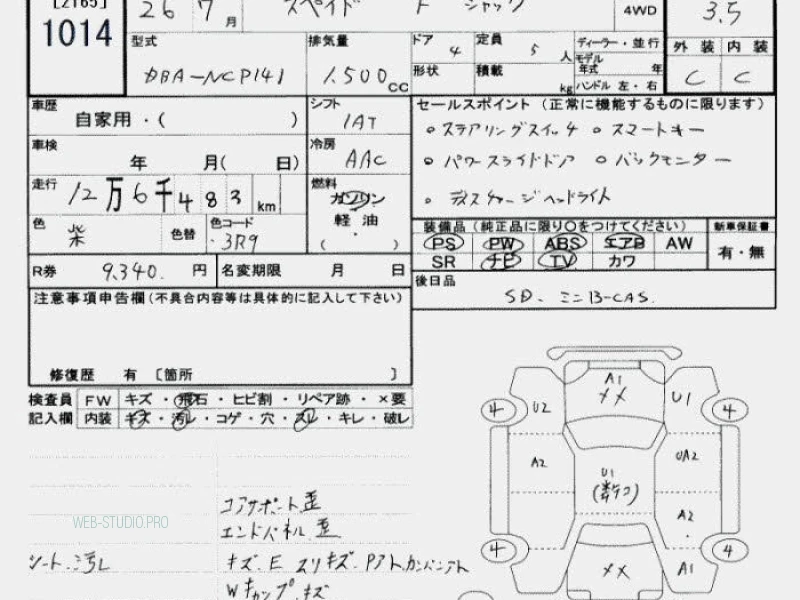 [2165]
1014
26 7月 スペイド F ジャック 4WD 3.5
型式 排気量 ドア 4 定員 5人 ディーラー・並行 外装 内装
DBA-NCP141 1.500cc 形状 積載 kg モデル年式 年 ハンドル 左・右 C C
車歴 シフト セールスポイント (正常に機能するものに限ります)
自家用・( ) IAT 。ステアリングスイッチ 。スマートキー
車検 冷房 。パワースライドドア 。バックモニター
年 月( 日) AAC
走行 12万6千483km 燃料 ガソリン 。ディスチャージヘッドライト
軽油
色 紫 色替 色コード 3R9 ( ) 装備品 (純正品に限り〇をつけてください) 新車保証書
PS PW ABS エアB AW 有・無
R券 9,340.円 名変期限 月 日 SR ナビ TV カワ
注意事項申告欄(不具合内容等は具体的に記入して下さい) 後日品
SD、ミニB-CAS.
修復歴 有 〔箇所 〕
検査員 FW キズ・飛石・ヒビ割・リペア跡・×要
記入欄 内装 キズ・汚レ・コゲ・穴・スレ・キレ・破レ
A1
XX
4 U2 U1 4
A2 U1 UA2
(数ケコ)
A2
コアサポート歪
WEB-STUDIO.PRO
エンドパネル歪
シート汚レ キズ.E スリキズ.
4 XX A1 4
Wキャップキズ